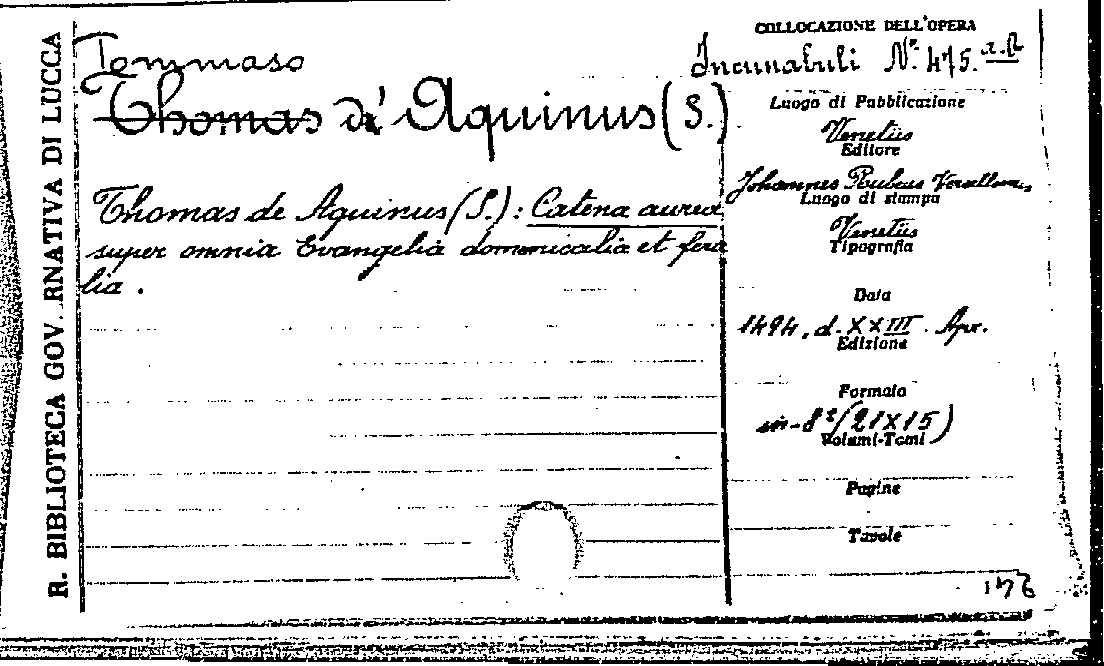 R. BIBLIOTECA GOV. RNATIVA DI LUCCA
Tommaso
Thomas d' Aquinus (S.)
Thomas de Aquinus (S.): Catena aurea
super omnia Evangelia domenicalia et fera
lia.
COLLOCAZIONE DELL'OPERA
Incunabuli N.º 475.
Luogo di Pubblicazione
Venetiis
Editore
Johannes Rubeus Vercellens
Luogo di stampa
Venetiis
Tipografia
Data
1494, d. XXIII. Apr.
Edizione
Formato
in-8º (21X15)
Volumi-Tomi
Pagine
Tavole